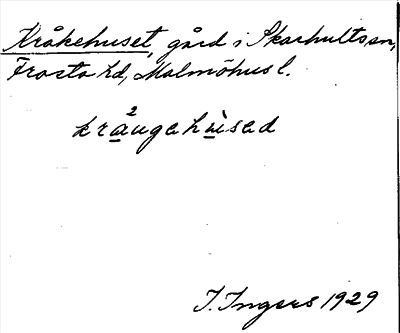 Kråkehuset, gård i Skarhults sn,
Frosta hd, Malmöhus l.
kråugahùsad
I. Ingers 1929